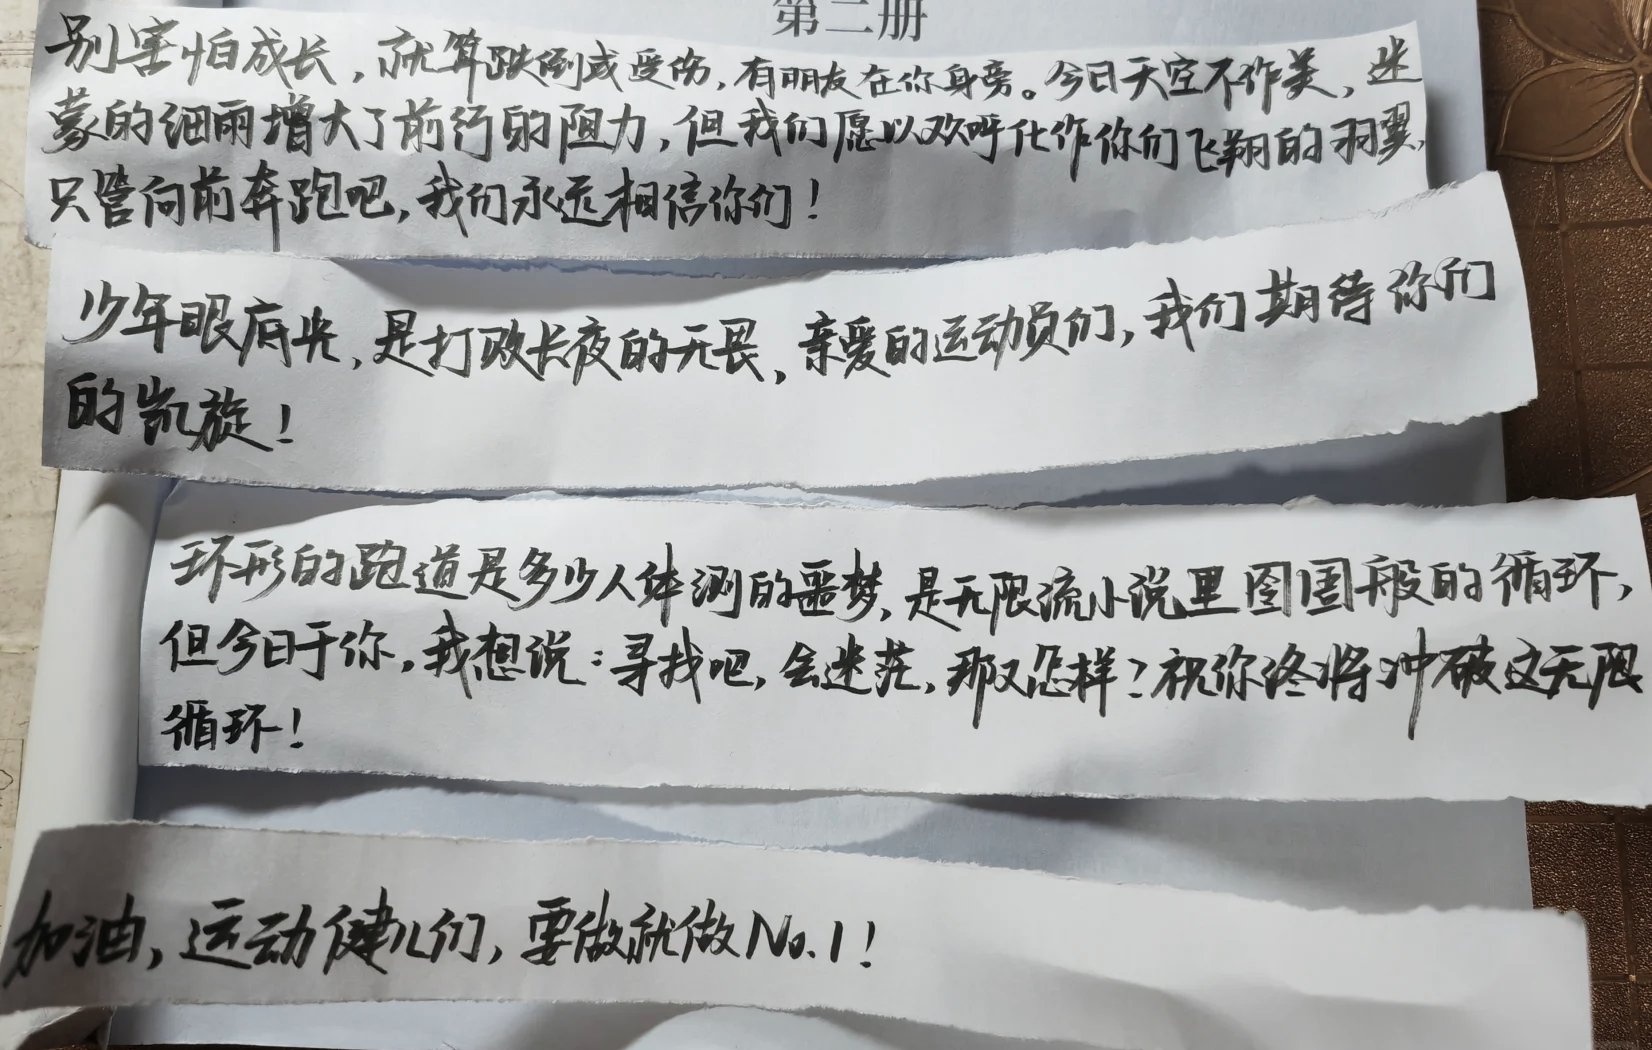 第二册
别害怕成长，就算跌倒或受伤，有朋友在你身旁。今日天空不作美，迷
蒙的细雨增大了前行的阻力，但我们愿以欢呼化作你们飞翔的羽翼，
只管向前奔跑吧，我们永远相信你们！
少年眼底光，是打败长夜的无畏，亲爱的运动员们，我们期待你们
的凯旋！
环形的跑道是多少人体测的噩梦，是无限流小说里囹圄般的循环，
但今日于你，我想说：寻找吧，会迷茫，那又怎样？祝你终将冲破这无限
循环！
加油，运动健儿们，要做就做No.1！